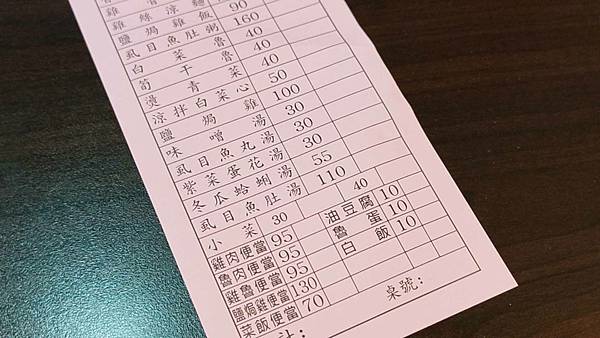 雞絲涼麵
鹽焗雞飯 90
虱目魚肚粥 160
白菜魯 40
筍干 40
燙青菜 40
涼拌白菜心 50
鹽焗雞 100
味噌湯 30
虱目魚丸湯 30
紫菜蛋花湯 30
冬瓜蛤蜊湯 55
虱目魚肚湯 110
小菜 30 40
雞肉便當 95 油豆腐 10
魯肉便當 95 魯蛋 10
雞魯便當 95 白飯 10
鹽焗雞便當 130
菜飯便當 70
桌號：
計：